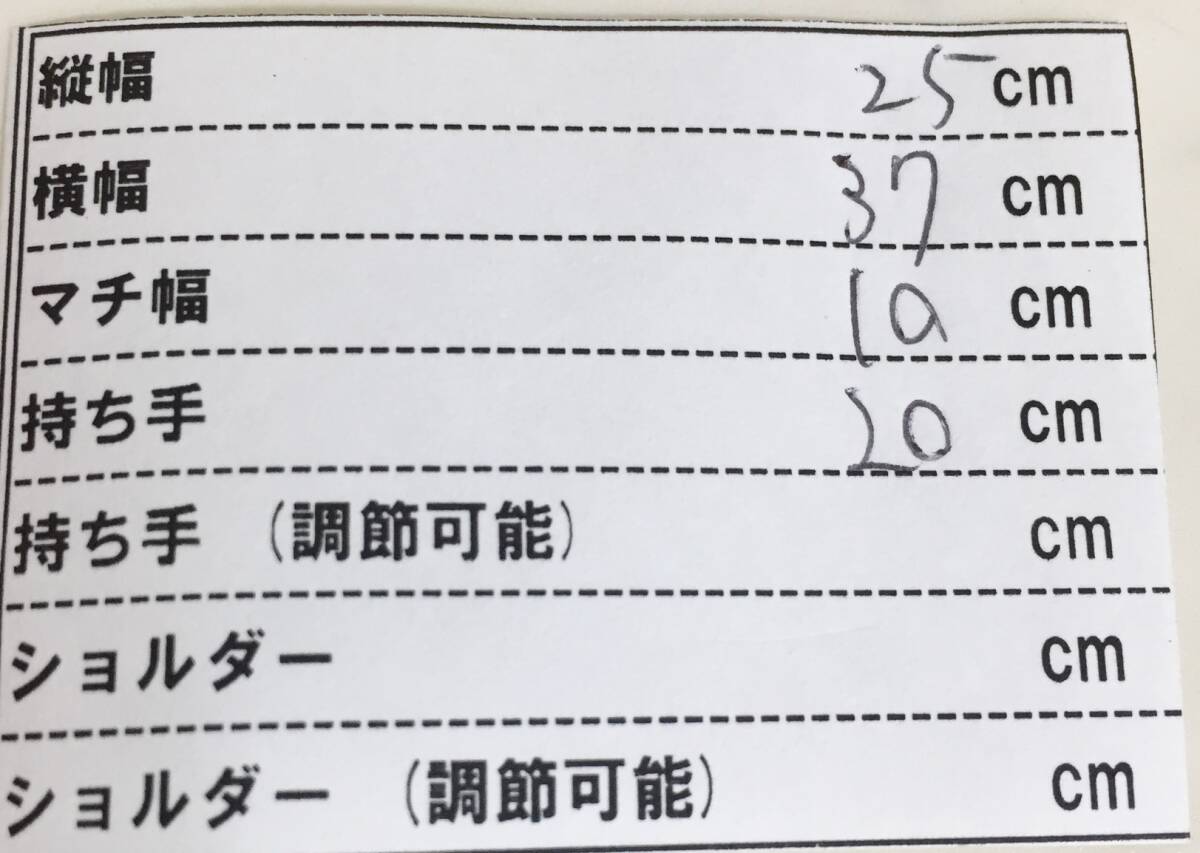 縦幅 25 cm
横幅 37 cm
マチ幅 10 cm
持ち手 20 cm
持ち手 (調節可能) cm
ショルダー cm
ショルダー (調節可能) cm